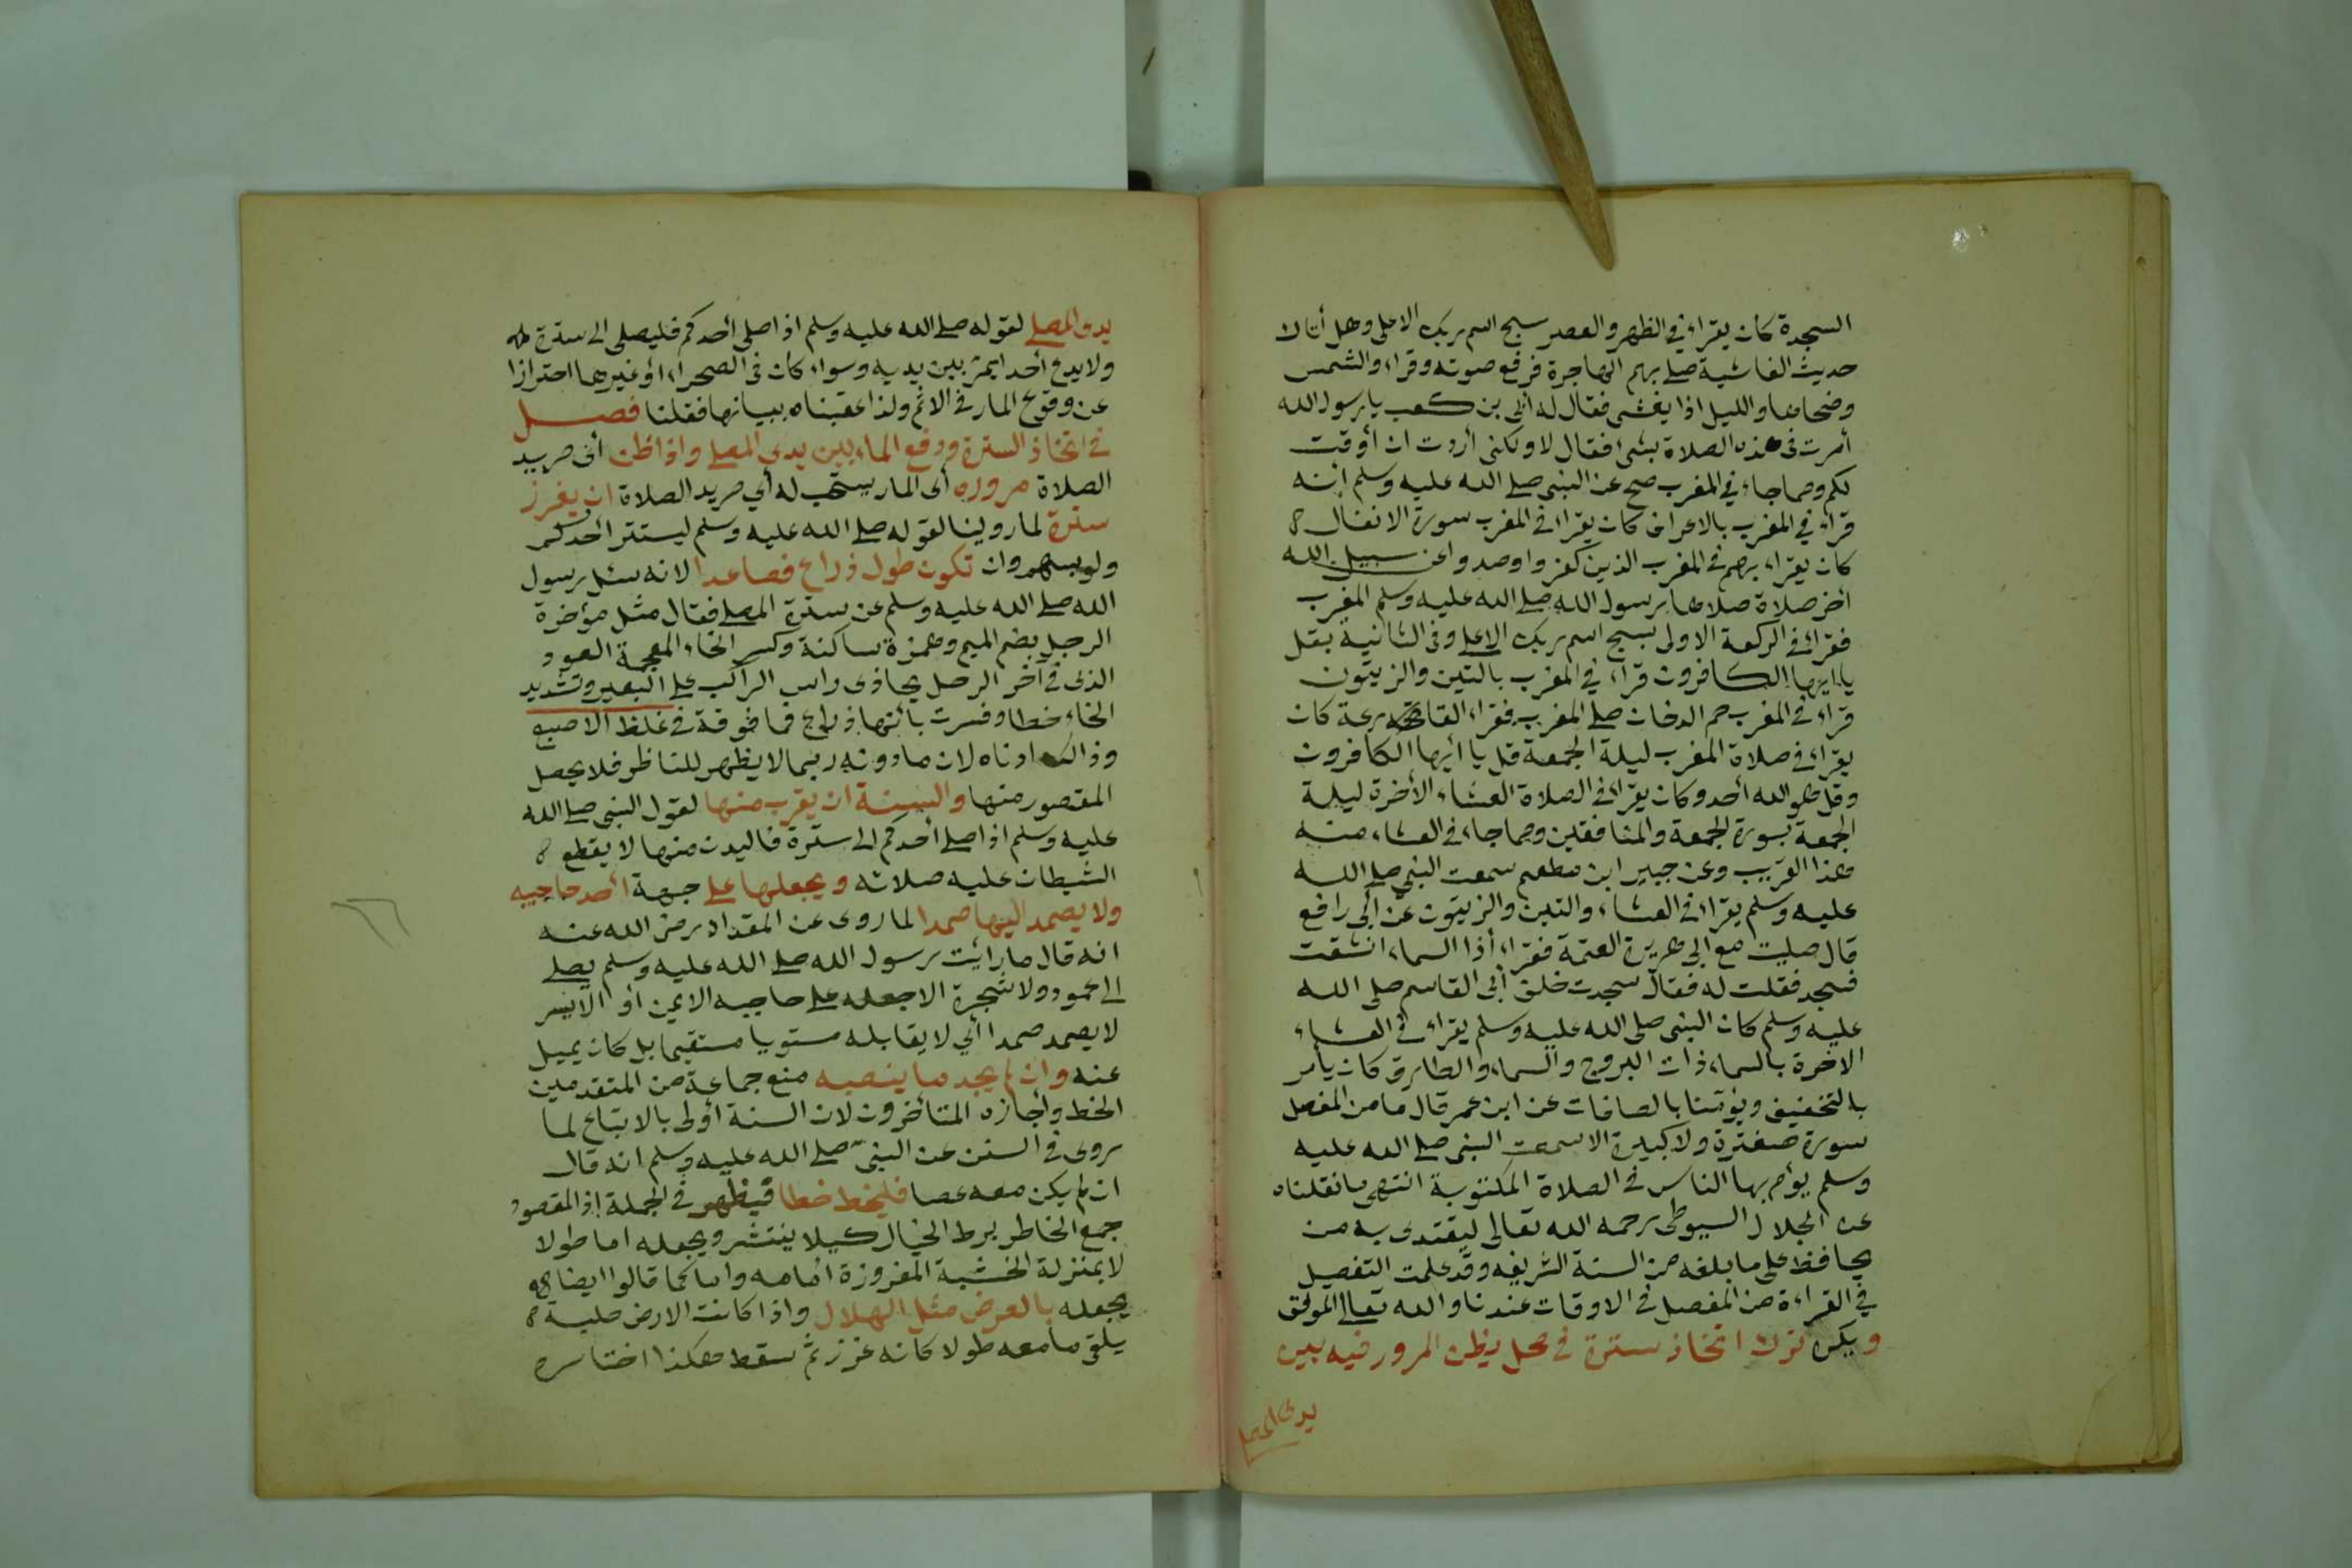 السجدة كان يقراء في الظهر والعصر سبح اسم ربك الاعلى وهل أتاك
حديث الغاشية صلى بهم الهاجرة فرفع صوته وقراء والشمس
وضحاها والليل اذا يغشى فقال له أبى بن كعب يا رسول الله
أمرت فى هذه الصلاة بشئ فقال لا ولكنى أردت ان أوقت
لكم ومما جاء في المغرب صح عن النبى صلى الله عليه وسلم أنه
قراء في المغرب بالاعراف كان يقراء في المغرب سورة الانفال
كان يقراء بهم في المغرب الذين كفروا وصدوا عن سبيل الله
أخر صلاة صلاها رسول الله صلى الله عليه وسلم المغرب
فقراء في الركعة الاولى بسبح اسم ربك الاعلى وفى الثانية بقل
يا ايها الكافرون قراء في المغرب بالتين والزيتون
قراء في المغرب حم الدخان صلى المغرب فقراء القارعة كان
يقراء في صلاة المغرب ليلة الجمعة قل يا أيها الكافرون
وقل هو الله أحد وكان يقراء في الصلاة العشاء الأخرة ليلة
الجمعة بسورة الجمعة والمنافقين ومما جاء في العشاء منه
هذا القريب وعن جبير ابن مطعم سمعت النبي صلى الله
عليه وسلم يقراء في العشاء والتين والزيتون عن أبي رافع
قال صليت مع ابي هريرة العتمة فقراء أذا السماء انشقت
فسجد فقلت له فقال سجدت خلف أبى القاسم صلى الله
عليه وسلم كان النبى صلى الله عليه وسلم يقراء في العشاء
الاخرة بالسماء ذات البروج والسماء والطارق كان يأمر
بالتخفيف ويؤمنا بالصافات عن ابن عمر قال ما من المفصل
سورة صغيرة ولا كبيرة الا سمعت النبى صلى الله عليه
وسلم يؤم بها الناس في الصلاة المكتوبة انتهى ما نقلناه
عن الجلال السيوطى رحمه الله تعالى ليقتدى به من
يحافظ على ما بلغه من السنة الشريفه وقد علمت التفصيل
في القراءة من المفصل في الاوقات عندنا والله تعالى الموفق
ويكره ترك اتخاذ سترة في محل يظن المرور فيه بين
يدى المصلى
يدى المصلى لقوله صلى الله عليه وسلم اذا صلى أحدكم فليصلى الى سترة
ولا يدع أحدا يمر بين يديه وسواء كان في الصحراء أو غيرها احترازا
عن وقوع المار في الاثم ولذا عقبناه ببيانها فقلنا فصل
في اتخاذ السترة ودفع المار بين يدى المصلى واذا ظن أى مريد
الصلاة مروره أى المار يستحب له أي مريد الصلاة ان يغرز
سترة لما روينا لقوله صلى الله عليه وسلم ليستتر أحدكم
ولو بسهم وان تكون طول ذراع فصاعدا لانه سئل رسول
الله صلى الله عليه وسلم عن سترة المصلى فقال مثل مؤخرة
الرحل بضم الميم وهمزة ساكنة وكسر الخاء المعجمة العود
الذى في آخر الرحل يحاذى راس الراكب على البعير وتشديد
الخاء خطا وفسرت بأنها ذراع فما فوقه في غلظ الاصبع
وذالك ادناه لان ما دونه ربما لا يظهر للناظر فلا يحصل
المقصور منها والسنة ان يقرب منها لقول النبى صلى الله
عليه وسلم اذا صلى أحدكم الى سترة فاليدن منها لا يقطع
الشيطان عليه صلاته ويجعلها على جهة أحد حاجبيه
ولا يصمد اليها صمدا لما روى عن المقداد رضى الله عنه
انه قال ما رأيت رسول الله صلى الله عليه وسلم يصلى
الى عمود ولا شجرة الا جعله على حاجبه الايمن أو الأيسر
لا يصمد صمدا أي لا يقابله مستويا مستقيما بل كان يميل
عنه وان لم يجد ما ينصبه منع جماعة من المتقدمين
الخط وأجازه المتأخرون لان السنة أولى بالاتباع لما
روى في السنن عن النبى صلى الله عليه وسلم انه قال
ان لم يكن معه عصا فليخط خطا فيظهر في الجملة اذ المقصود
جمع الخاطر بربط الخيال كيلا ينتشر ويجعله اما طولا
لا بمنزلة الخشبة المغروزة أمامه واما كما قالوا ايضا
يجعله بالعرض مثل الهلال واذا كانت الارض صلبة
يلقى ما معه طولا كانه غرز ثم سقط هكذا اختاره